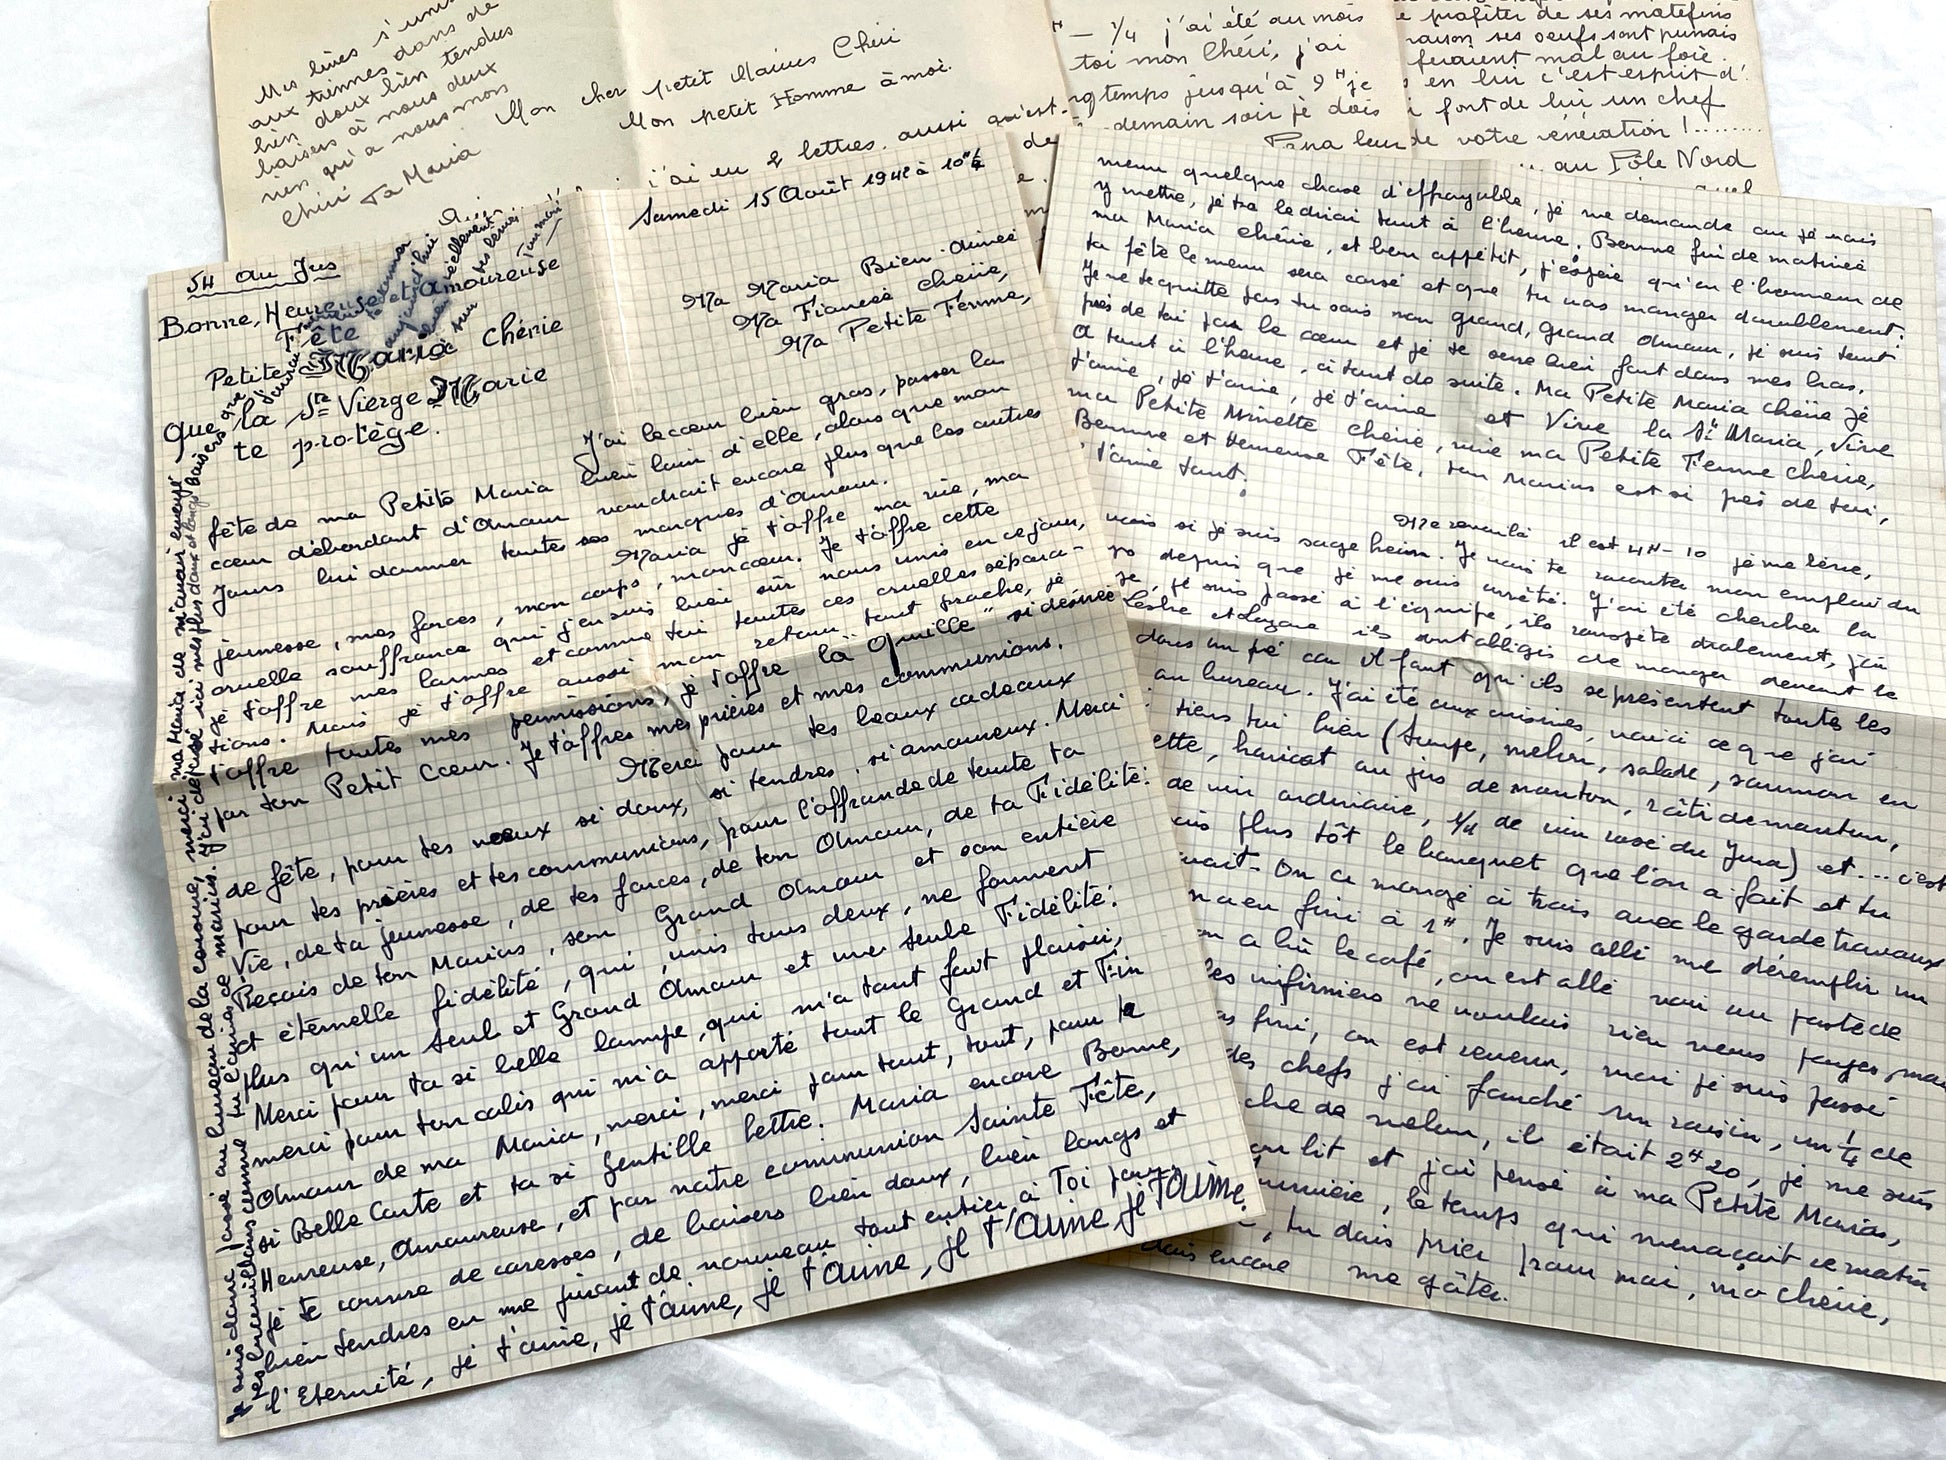 Mes lèvres s'unissent
aux tiennes dans de
bien doux bien tendres
baisers à nous deux
rien qu'à nous mon
Chéri Ta Maria
Mon cher petit Marius Chéri
Mon petit Homme à moi.
j'ai eu 2 lettres aussi qu'est-
1/4 j'ai été au mois
toi mon Chéri, j'ai
jusqu'à 9 H je
demain soir je dois
profiter de ses matefins
ses oeufs sont punais
feraient mal au foie.
en lui c'est esprit d'
font de lui un chef
de votre vénération !........
au Pôle Nord
54 au Jus
Samedi 15 Août 1942 à 10H 1/2
Bonne, Heureuse et Amoureuse
Fête
Petite Maria Chérie
Que la Ste Vierge Marie
te protège.
Ma Maria Bien Aimée
Ma Fiancée Chérie,
Ma Petite Femme,
J'ai le cœur bien gros, passer la
fête de ma Petite Maria bien loin d'elle, alors que mon
cœur débordant d'Amour voudrait encore plus que les autres
jours lui donner toutes ses marques d'Amour.
Maria je t'offre ma vie, ma
jeunesse, mes forces, mon corps, mon cœur. Je t'offre cette
cruelle souffrance qui j'en suis bien sûr nous unis en ce jour,
je t'offre mes larmes et comme toi toutes ces cruelles sépara-
tions. Mais je t'offre aussi mon retour tout proche, je
t'offre toutes mes permissions, je t'offre la "Quille" si désirée
par ton Petit Cœur. Je t'offres mes prières et mes communions.
Merci pour tes beaux cadeaux
de fête, pour tes vœux si doux, si tendres, si amoureux. Merci
pour tes prières et tes communions, pour l'offrande de toute ta
Vie, de ta jeunesse, de tes forces, de ton Amour, de ta Fidélité.
Reçois de ton Marius, son Grand Amour et son entière
et éternelle fidélité, qui, unis tous deux, ne forment
plus qu'un seul et Grand Amour et une seule Fidélité.
Merci pour ta si belle lampe, qui m'a tant fait plaisir,
merci pour ton colis qui m'a apporté tout le Grand et Fin
Amour de ma Maria, merci, merci pour tout, tout, pour ta
si Belle Carte et ta si gentille lettre. Maria encore Bonne,
Heureuse, Amoureuse, et par notre communion Sainte Fête,
je te couvre de caresses, de baisers bien doux, bien longs et
bien tendres en me jurant de nouveau tout entier à Toi pour
l'Eternité, je t'aime, je t'aime, je t'aime, je t'aime, je t'aime.
même quelque chose d'effroyable, je me demande où je vais
y mettre, je te le dirai tout à l'heure. Bonne fin de matinée
ma Maria chérie, et bon appétit, j'espère qu'en l'honneur de
ta fête le menu sera corsé et que tu vas manger doublement.
Je ne te quitte pas tu sais mon grand, Grand Amour, je suis tout
près de toi par le cœur et je te serre bien fort dans mes bras.
A tout à l'heure, à tout de suite. Ma Petite Maria chérie je
t'aime, je t'aime, je t'aime et Vive la Ste Maria, Vive
ma Petite Minette chérie, vive ma Petite Femme chérie,
Bonne et Heureuse Fête, ton Marius est si près de toi,
t'aime tant.
Me revoilà il est 4H-10 je me lève,
vois si je suis sage hein. Je vais te raconter mon emploi du
depuis que je me suis arrêté. J'ai été chercher la
je suis passé à l'équipe, ils rouspète drôlement, j'ai
ils sont obligés de manger devant le
dans un pé car il faut qu'ils se présentent toutes les
au bureau. J'ai été aux cuisines, voici ce que j'ai
tiens toi bien (Soupe, melon, salade, saumon en
haricot au jus de mouton, rôti de mouton,
de vin ordinaire, 1/4 de vin rosé du Jura) et... c'est
plus tôt le banquet que l'on a fait et tu
On a mangé à trois avec le garde travaux
fini à 1H. Je suis allé me déremplir un
on a bû le café, on est allé voir au poste de
les infirmiers ne voulais rien nous payer, mais
fini, on est revenu, moi je suis passé
des chefs j'ai fauché un raisin, un 1/4 de
de melon, il était 2H20, je me suis
au lit et j'ai pensé à ma Petite Maria,
le temps qui menaçait ce matin
tu dois prier pour moi, ma chérie,
encore me gâter.